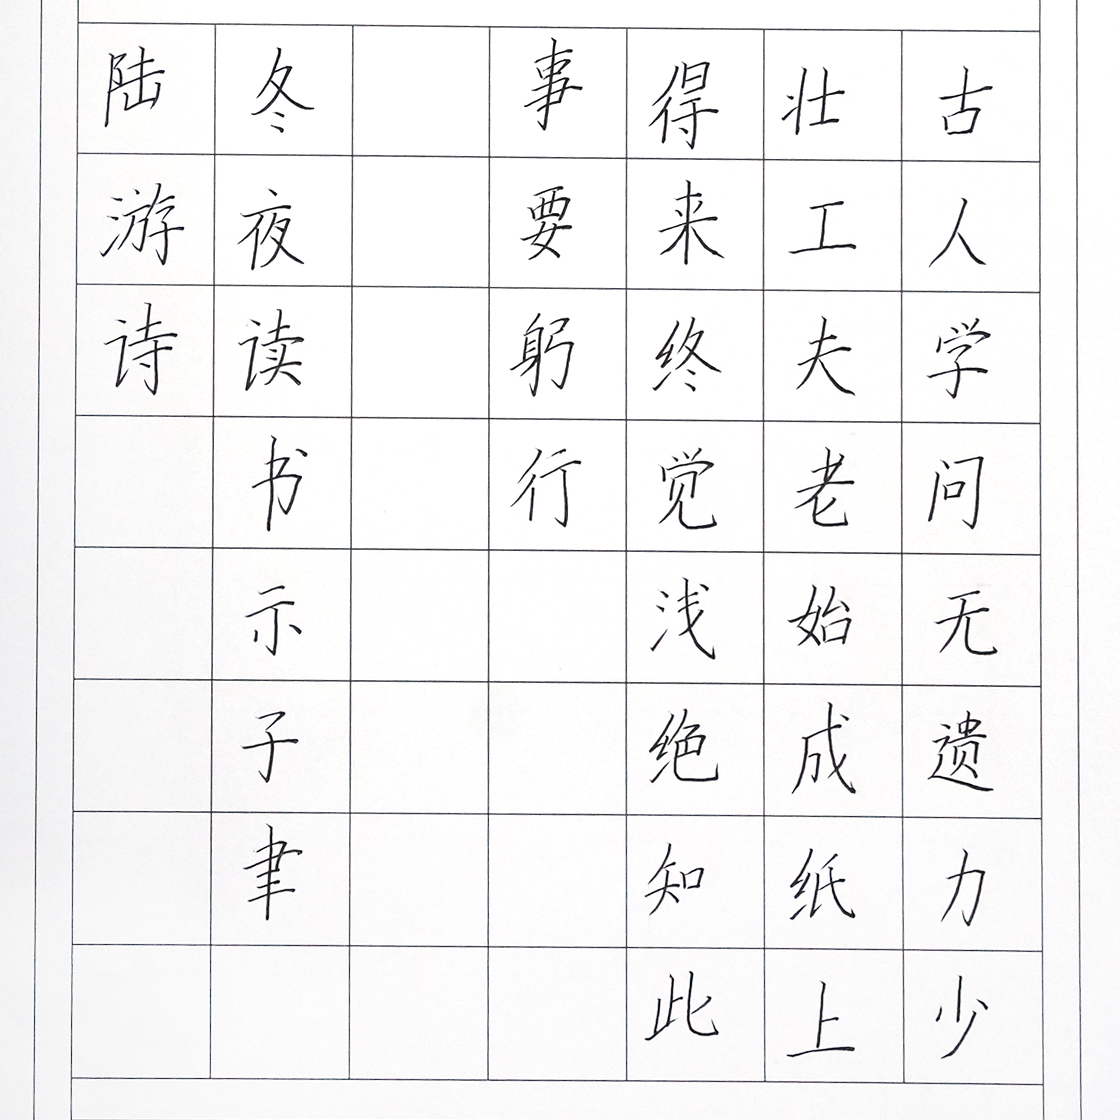 古人学问无遗力少
壮工夫老始成纸上
得来终觉浅绝知此
事要躬行
冬夜读书示子聿
陆游诗